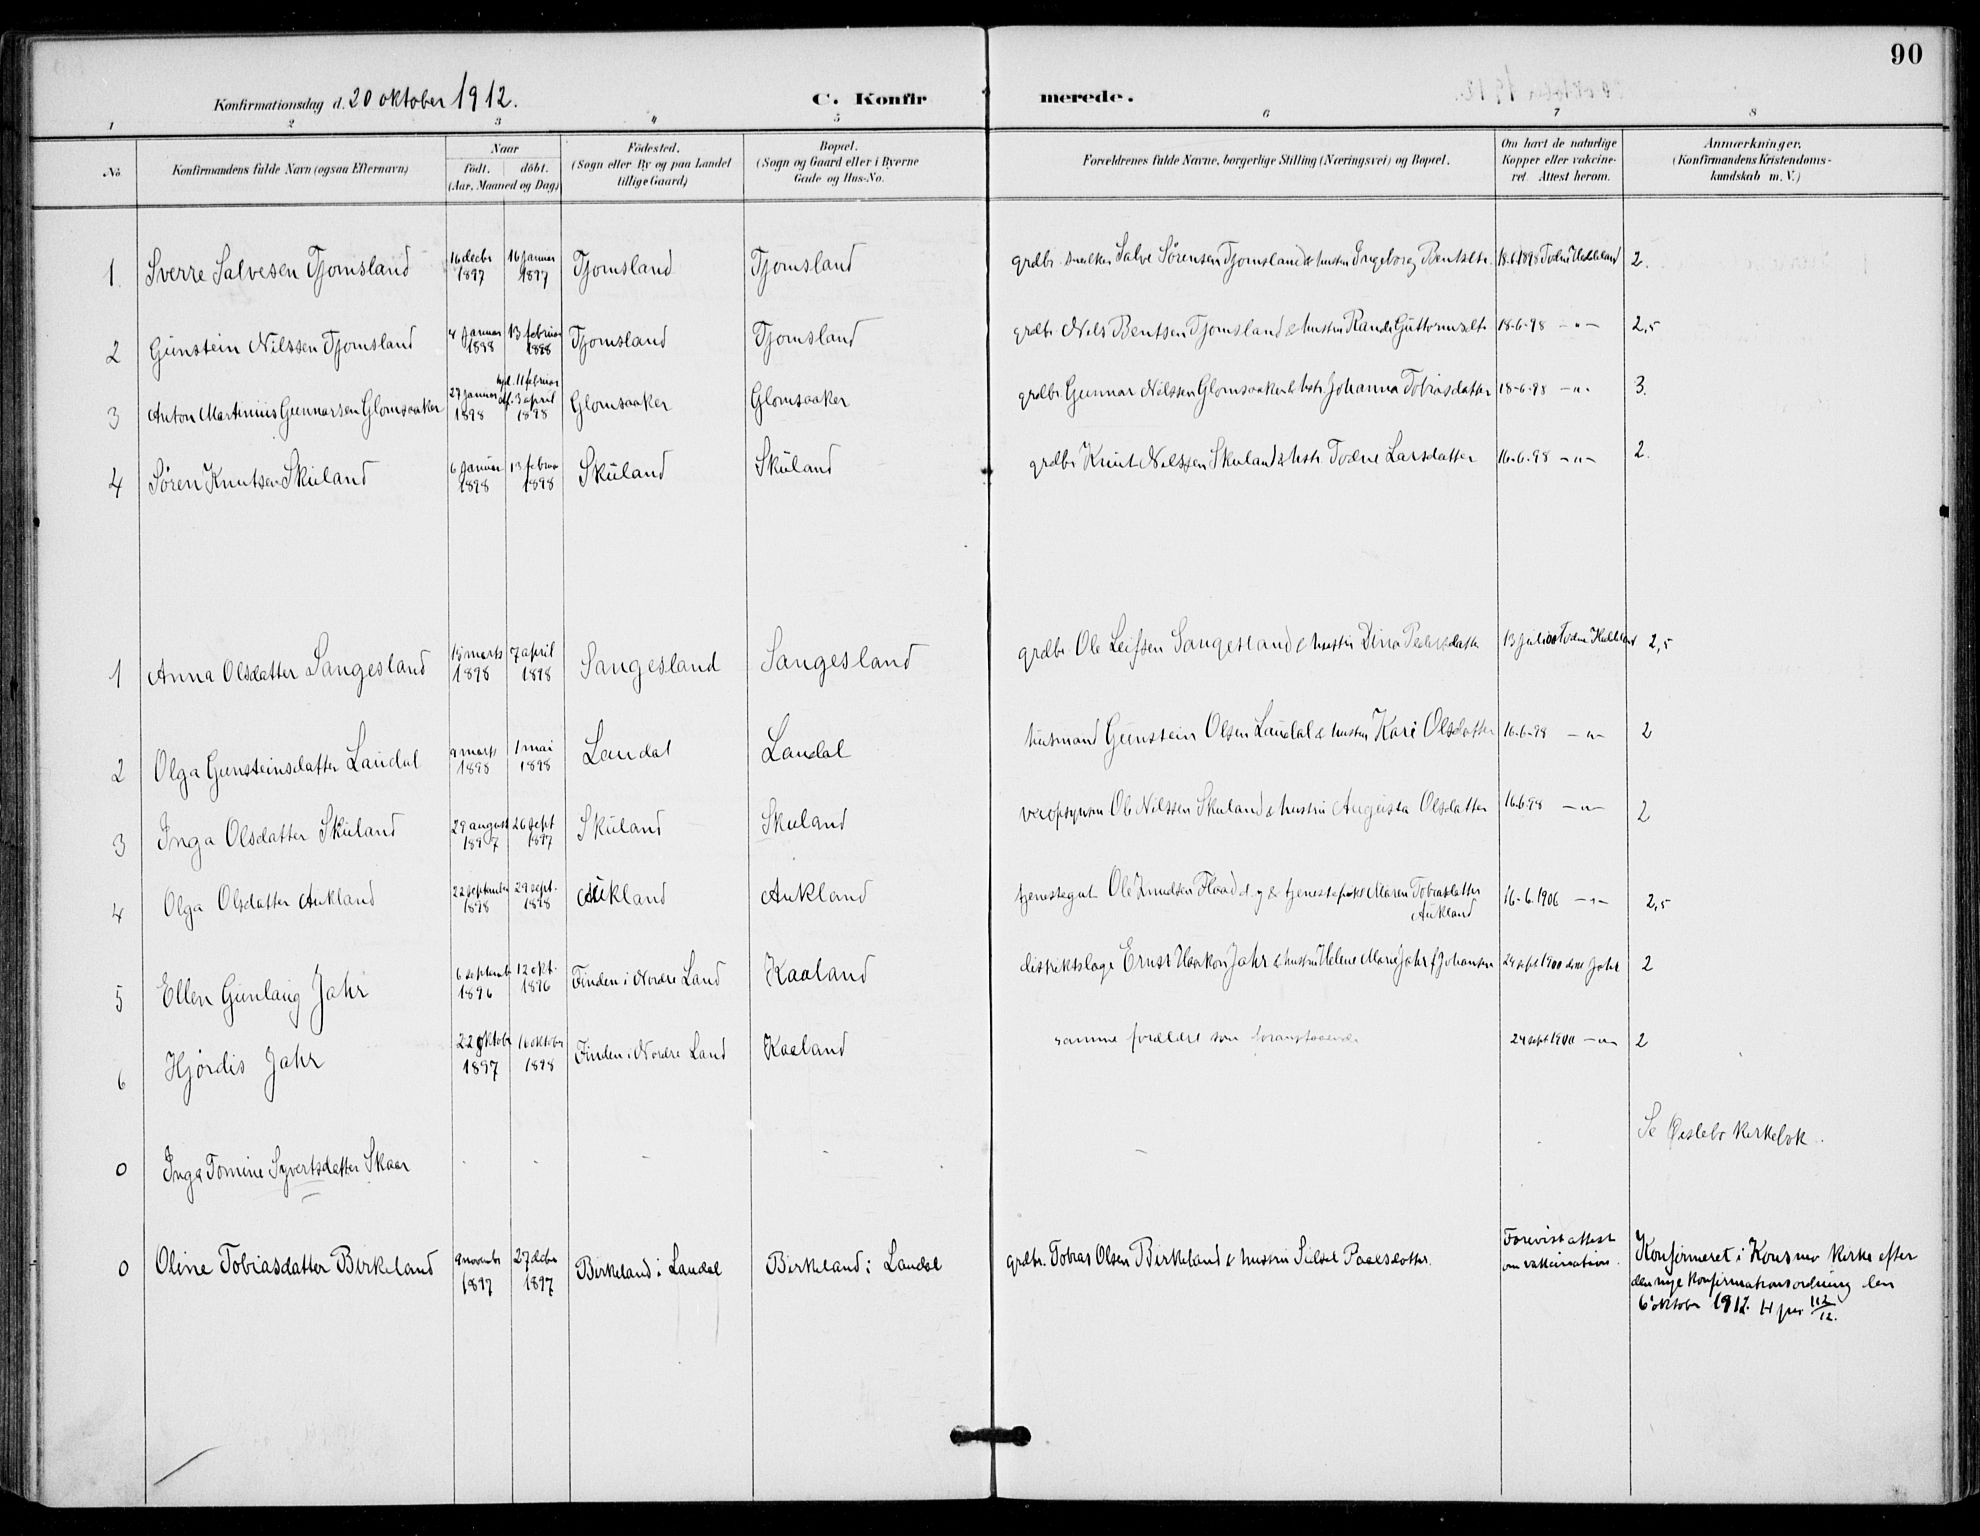 90
Konfirmationsdag d. 20 oktober 1912. C. Konfirmerede.
1 2 3 4 5 6 7 8
No. Konfirmandens fulde Navn (ogsaa Efternavn) Naar født. døbt. (Aar, Maaned og Dag) Födested. (Sogn eller By og paa Landet tillige Gaard) Bopæl. (Sogn og Gaard eller i Byerne Gade og Hus-No. Forældrenes fulde Navne, borgerlige Stilling (Næringsvei) og Bopæl. Om havt de naturlige Kopper eller vakcineret. Attest herom. Anmærkninger. (Konfirmandens Kristendomskundskab m. V.)
1 Sverre Salvesen Tjomsland 16 decbr 1897 16 januar 1897 Tjomsland Tjomsland grdbr. snedker Salve Sörensen Tjomsland & hustru Ingeborg Bentsdtr. 18.6.1898 2.
2 Gunstein Nilssen Tjomsland 4 januar 1898 13 februar 1898 Tjomsland Tjomsland grdbr Nils Bentsen Tjomsland & hustru Randi Guttormsdtr 18-6-98 -"- 2,5
3 Anton Martinius Gunnarsen Glomsaaker 27 januar 1898 hjd. 11 februar 3 april 1898 Glomsaaker Glomsaaker grdbr Gunnar Nilssen Glomsaaker & hstr Johanna Tobiasdatter 18-6-98 -"- 3.
4 Sören Knutsen Skuland 6 januar 1898 13 februar 1898 Skuland Skuland grdbr Knut Nilssen Skuland & hstr. Todne Larsdatter 16-6-98 -"- 2.
1 Anna Olsdatter Sangesland 15 marts 1898 7 april 1898 Sangesland Sangesland grdbr Ole Leifsen Sangesland & hustru Dina Pedersdatter 13 juli 2,5
2 Olga Gunsteinsdatter Laudal 9 marts 1898 1 mai 1898 Laudal Laudal husmand Gunstein Olsen Laudal & hustru Kari Olsdatter 16-6-98 -"- 2
3 Inga Olsdatter Skuland 29 august 1897 26 sept 1897 Skuland Skuland veiopsynsm Ole Nilssen Skuland & hustru Augusta Olsdatter 16.6.98 -"- 2
4 Olga Olsdatter Aukland 22 september 1898 29 sept. 1898 Aukland Aukland tjenestegut Ole Knudsen Flaad d. y & tjenestepike Maren Tobiasdatter Aukland 16-6.1906 -"- 2,5
5 Ellen Gunlaug Jahr 6 septemb 1896 12 okt. 1896 Finden i Nordre Land Kaaland distriktslæge Ernst Haakon Jahr & hustru Helene Marie Jahr f Johansen 24 sept 1900 Jahr 2
6 Hjördis Jahr 22 oktobr 1897 16 oktober 1898 Finden i Nordre Land Kaaland samme forældre som foranstaaende 24 sept 1900 -"- 2
0 Inga Tomine Syvertsdatter Skaar - - - - - - Se Øislebø kirkebok.
0 Oline Tobiasdatter Birkeland 9 novembr 1897 27 decbr 1897 Birkeland i Laudal Birkeland i Laudal grdbr. Tobias Olsen Birkeland & hustru Sidsel Paalsdatter. Forevist attest om vakcination. Konfirmeret i Konsmo kirke efter
den nye konfirmationsordning den
6 oktober 1912. 112/12.